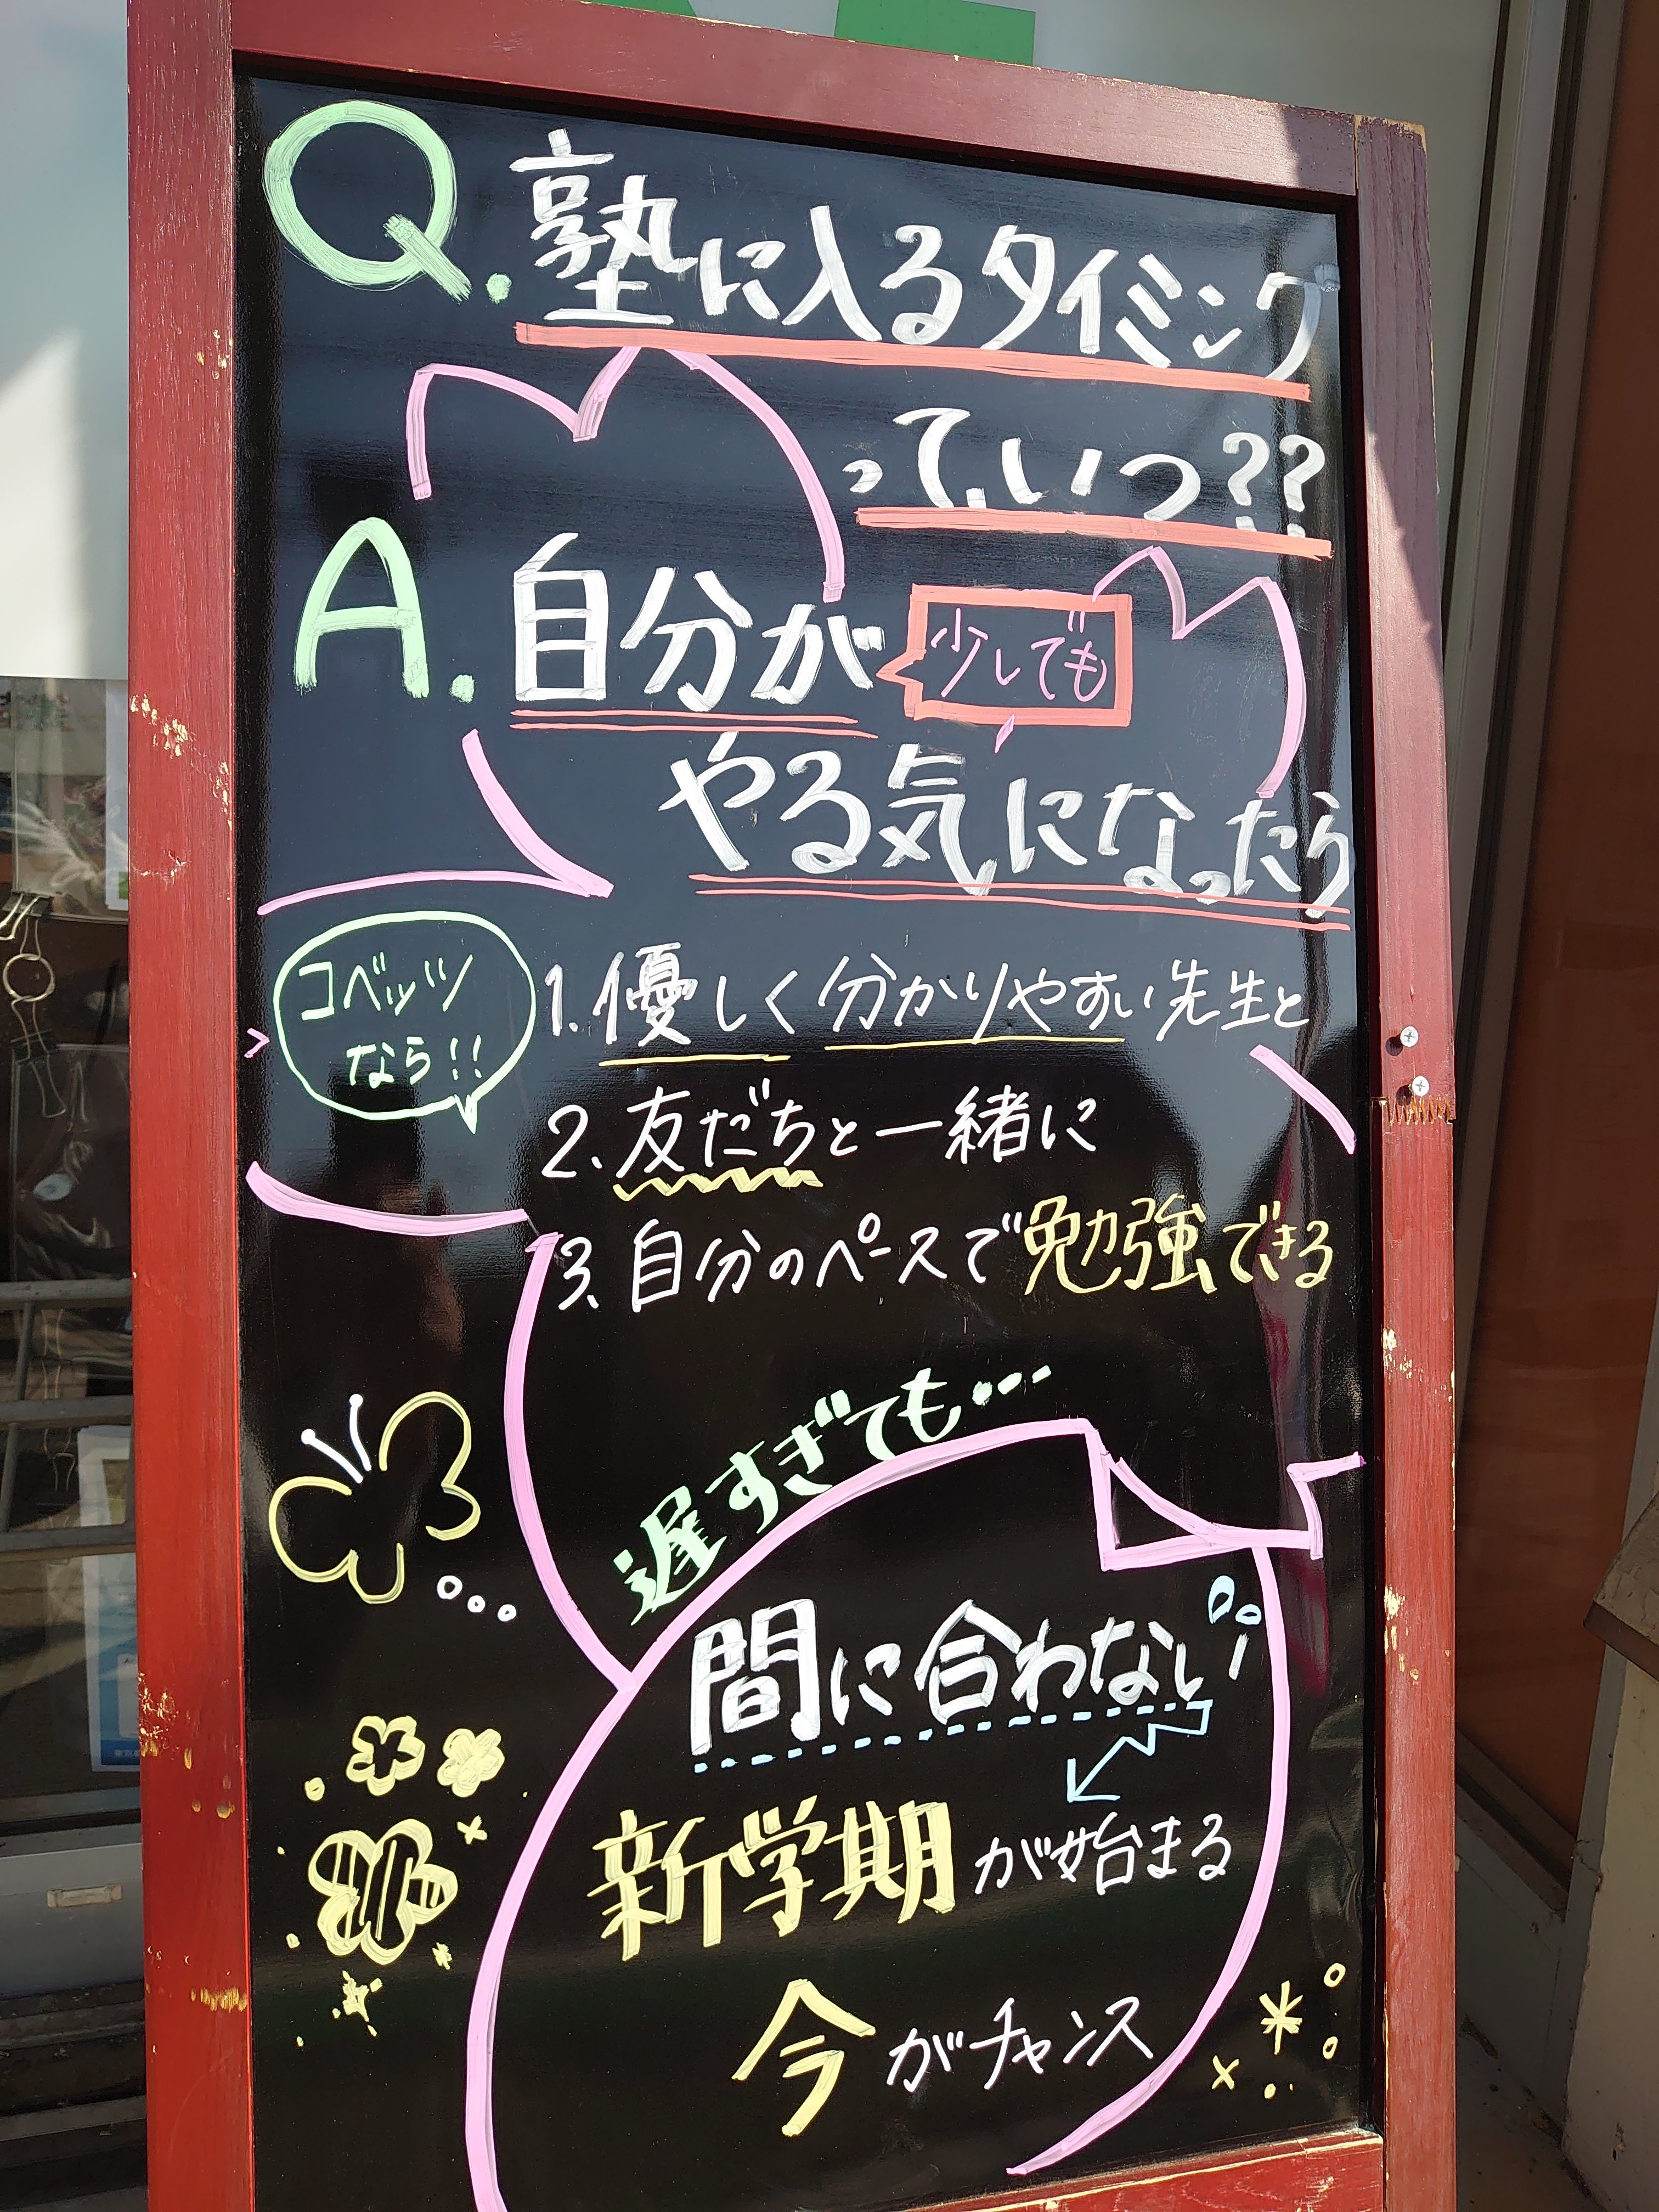 Q. 塾に入るタイミング
っていつ??
A. 自分が 少しでも
やる気になったら
コベッツ
なら!!
1. 優しく分かりやすい先生と
2. 友だちと一緒に
3. 自分のペースで勉強できる
遅すぎても…
間に合わない
新学期が始まる
今がチャンス